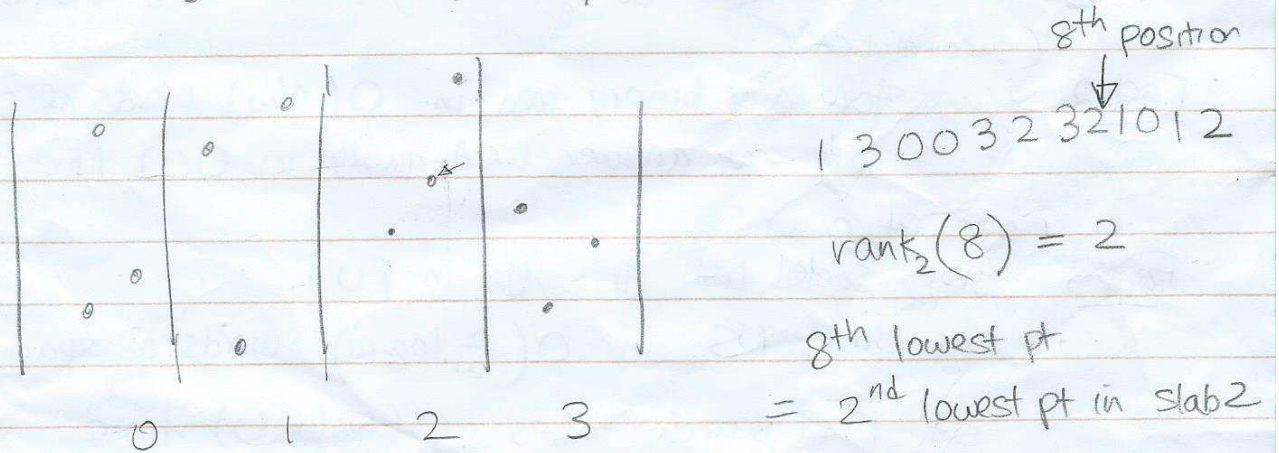 8th position
1 3 0 0 3 2 3 2 1 0 1 2
rank2(8) = 2
8th lowest pt
= 2nd lowest pt in slab 2
0 1 2 3